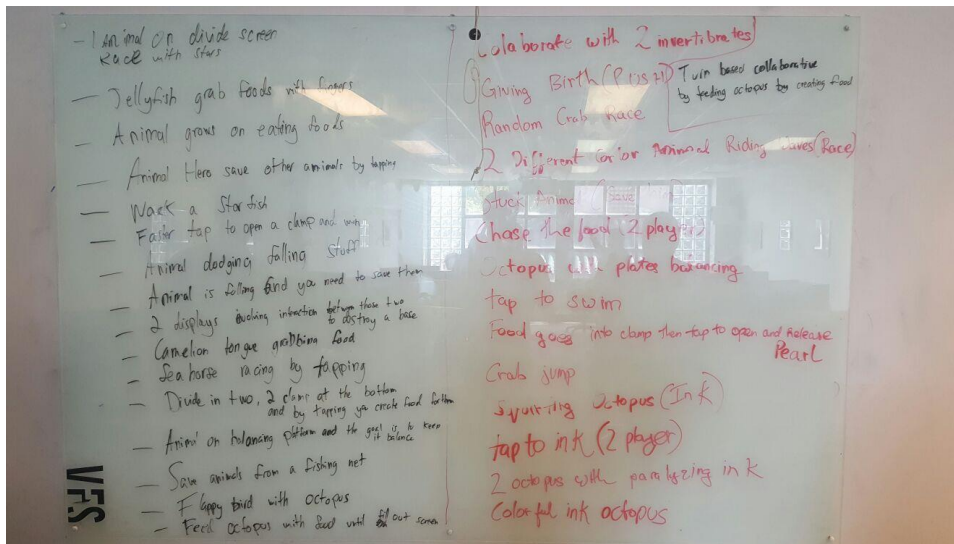 - 1 Animal on divide screen
Race with stars
- Jellyfish grab foods with fingers
- Animal grows on eating foods
- Animal Hero save other amimals by tapping
- Wack a Starfish
- Faster tap to open a clamp and with
- Animal dodging falling stuff
- Animal is falling and you need to save them
- 2 displays involving intraction between those two
to destroy a base
- Camelion tongue grabbing food
- Sea horse racing by tapping
- Divide in two, 2 clamp at the bottom
and by tapping you create food for them
- Animal on balancing platform and the goal is to keep
it balance
- Save animals from a fishing net
- Flappy bird with octopus
- Feed octopus with food until fill out screen
VFS
Colaborate with 2 invertibrates
Giving Birth (PUSH)
Turn based collaborative
by feeding octopus by creating food
Random Crab Race
2 Different Color Animal Riding Waves (Race)
Stuck Animal (Save)
Chase the food (2 player)
Octopus with plates balancing
tap to swim
Food goes into clamp then tap to open and Release
Pearl
Crab jump
Squirting Octopus (Ink)
tap to ink (2 player)
2 octopus with paralyzing ink
Colorful ink octopus